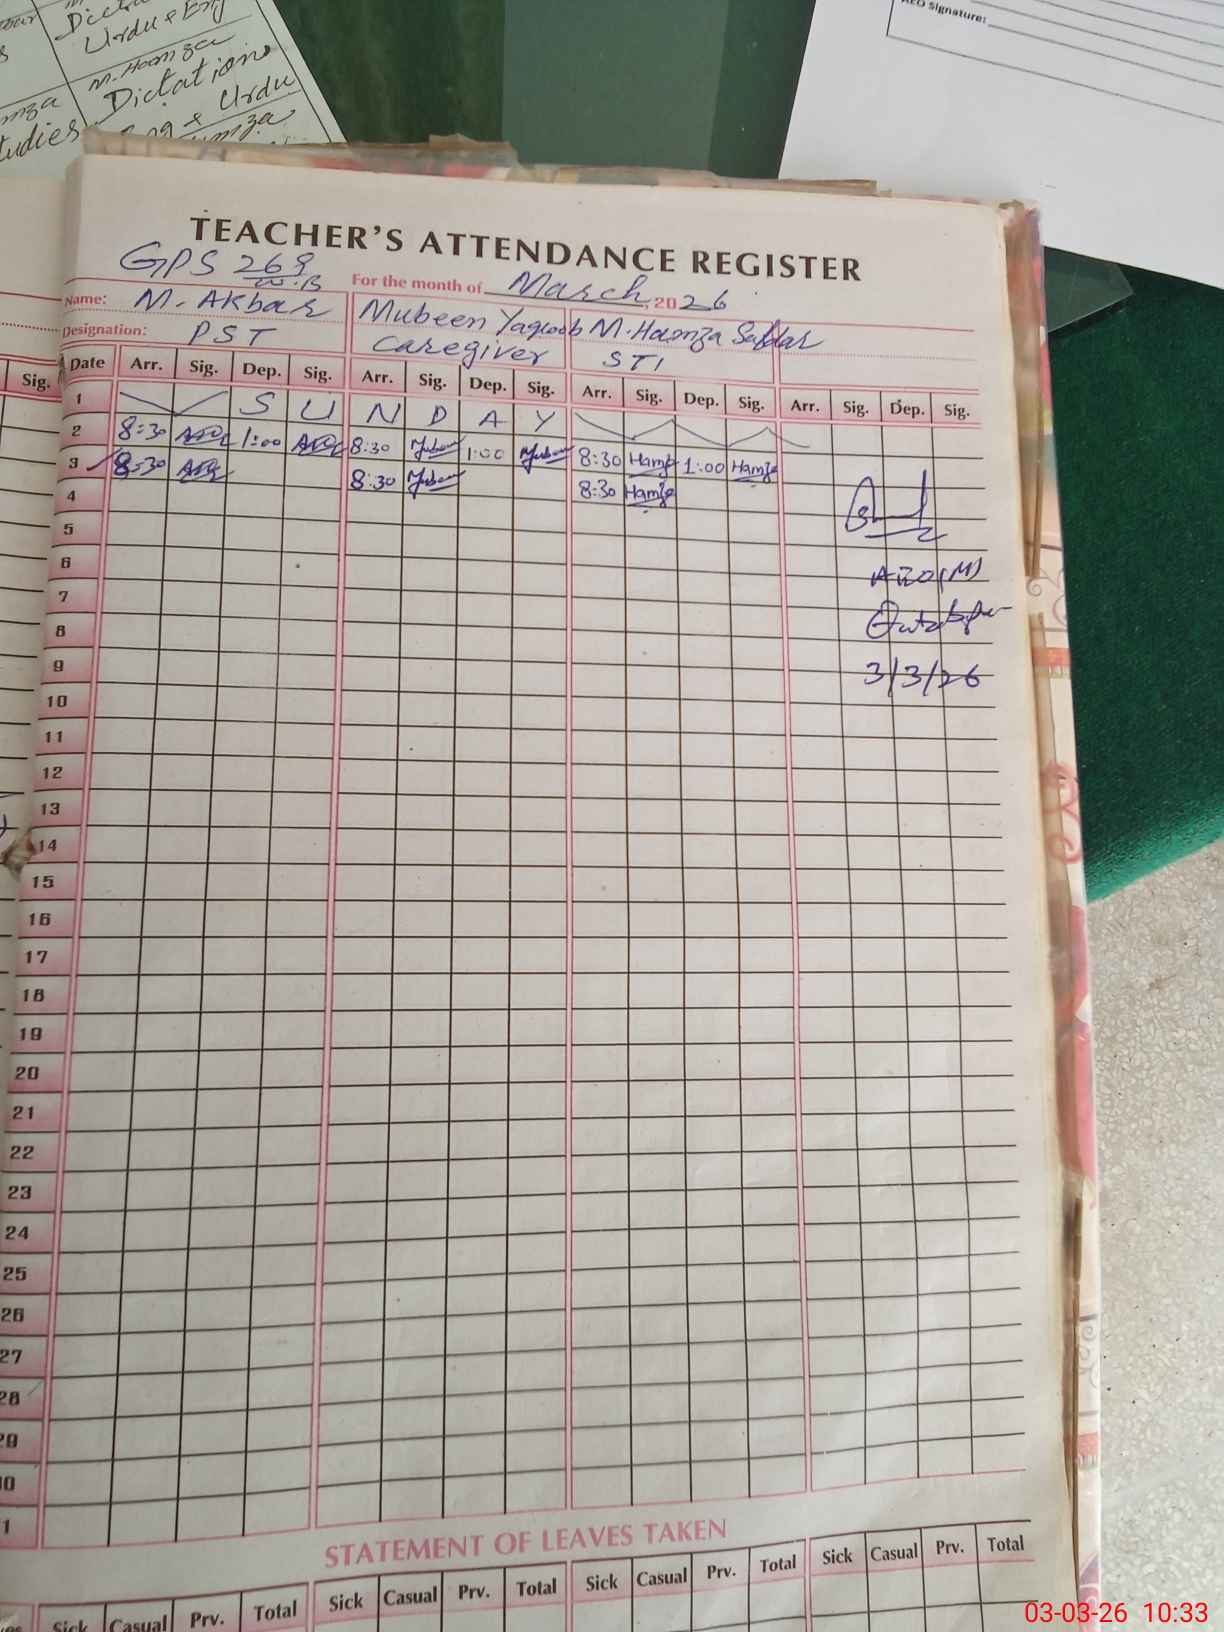 Dictation
Urdu & Eng
M. Hamza
Dictation
Eng & Urdu
AEO Signature:
TEACHER'S ATTENDANCE REGISTER
GPS 269
W.B
For the month of March, 2026
Name: M. Akbar Mubeen Yaqoob M. Hamza Safdar
Designation: PST Caregiver STI
Sig.
Date Arr. Sig. Dep. Sig. Arr. Sig. Dep. Sig. Arr. Sig. Dep. Sig. Arr. Sig. Dep. Sig.
1 S U N D A Y
2 8:30 1:00 8:30 1:00 8:30 Hamza 1:00 Hamza
3 8:30 8:30 8:30 Hamza
4
5
6
AEO(M)
7
8
9
3/3/26
10
11
12
13
14
15
16
17
18
19
20
21
22
23
24
25
26
27
28
29
30
31
STATEMENT OF LEAVES TAKEN
Sick Casual Prv. Total Sick Casual Prv. Total Sick Casual Prv. Total Sick Casual Prv. Total
03-03-26 10:33